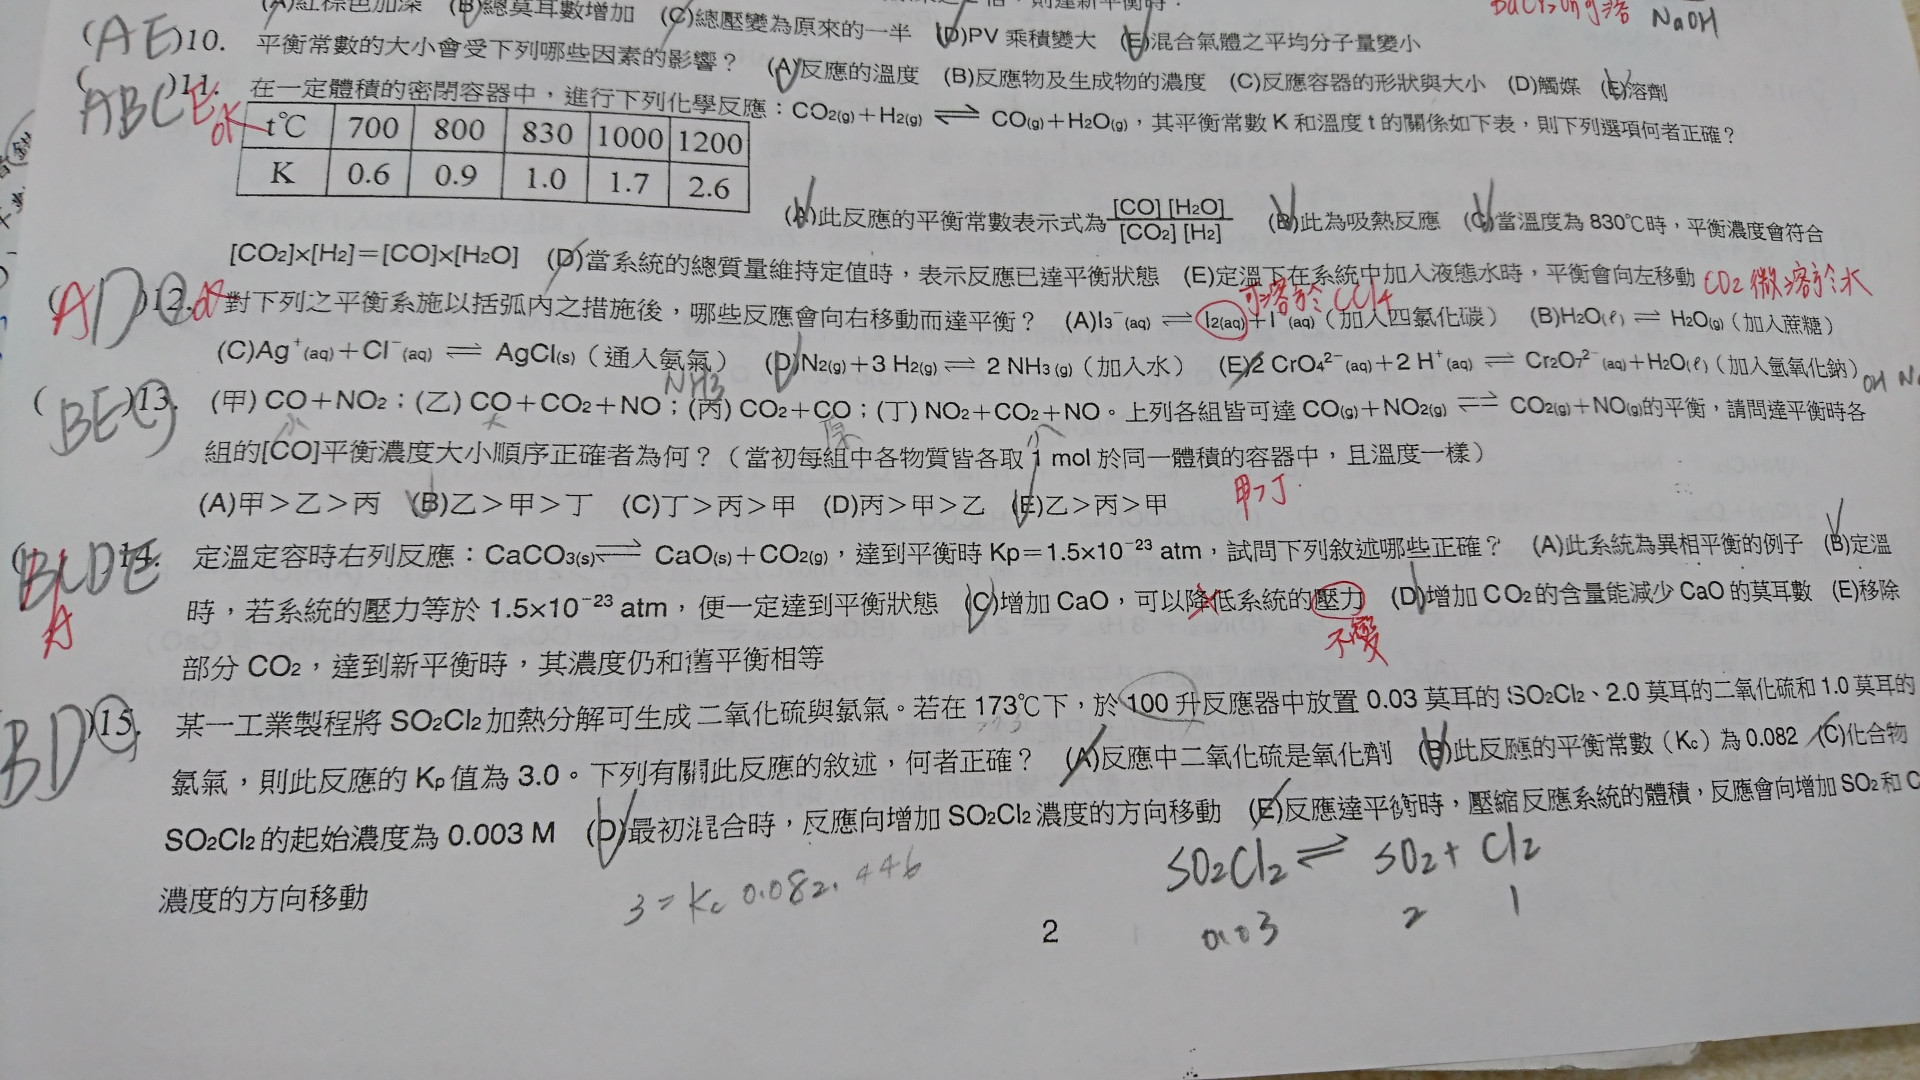 (A)紅棕色加深 (B)總莫耳數增加 (C)總壓變為原來的一半 (D)PV 乘積變大 (E)混合氣體之平均分子量變小
BaCrO4可溶 NaOH
(AE)10. 平衡常數的大小會受下列哪些因素的影響？ (A)反應的溫度 (B)反應物及生成物的濃度 (C)反應容器的形狀與大小 (D)觸媒 (E)溶劑
( )11. 在一定體積的密閉容器中，進行下列化學反應：CO2(g)+H2(g) ⇌ CO(g)+H2O(g)，其平衡常數 K 和溫度 t 的關係如下表，則下列選項何者正確？
ABCE OK
t℃ 700 800 830 1000 1200
K 0.6 0.9 1.0 1.7 2.6
(A)此反應的平衡常數表示式為 [CO][H2O] / [CO2][H2] (B)此為吸熱反應 (C)當溫度為 830℃時，平衡濃度會符合
[CO2]×[H2]＝[CO]×[H2O] (D)當系統的總質量維持定值時，表示反應已達平衡狀態 (E)定溫下在系統中加入液態水時，平衡會向左移動 CO2微溶於水
(AD)12. OK 對下列之平衡系施以括弧內之措施後，哪些反應會向右移動而達平衡？ (A)I3⁻(aq) ⇌ I2(aq)+I⁻(aq)（加入四氯化碳） (B)H2O(ℓ) ⇌ H2O(g)（加入蔗糖）
可溶於CCl4
(C)Ag⁺(aq)+Cl⁻(aq) ⇌ AgCl(s)（通入氨氣） (D)N2(g)+3 H2(g) ⇌ 2 NH3(g)（加入水） (E)2 CrO4²⁻(aq)+2 H⁺(aq) ⇌ Cr2O7²⁻(aq)+H2O(ℓ)（加入氫氧化鈉）
NH3 OH
(BE)13. (甲) CO+NO2；(乙) CO+CO2+NO；(丙) CO2+CO；(丁) NO2+CO2+NO。上列各組皆可達 CO(g)+NO2(g) ⇌ CO2(g)+NO(g)的平衡，請問達平衡時各
小 大 原 小
組的[CO]平衡濃度大小順序正確者為何？（當初每組中各物質皆各取 1 mol 於同一體積的容器中，且溫度一樣）
(A)甲＞乙＞丙 (B)乙＞甲＞丁 (C)丁＞丙＞甲 (D)丙＞甲＞乙 (E)乙＞丙＞甲 甲>丁
(BCDE14. 定溫定容時右列反應：CaCO3(s) ⇌ CaO(s)+CO2(g)，達到平衡時 Kp＝1.5×10⁻²³ atm，試問下列敘述哪些正確？ (A)此系統為異相平衡的例子 (B)定溫
A
時，若系統的壓力等於 1.5×10⁻²³ atm，便一定達到平衡狀態 (C)增加 CaO，可以降低系統的壓力 (D)增加 CO2的含量能減少 CaO 的莫耳數 (E)移除
不變
部分 CO2，達到新平衡時，其濃度仍和舊平衡相等
(BD)15. 某一工業製程將 SO2Cl2加熱分解可生成 二氧化硫與氯氣。若在 173℃下，於 100 升反應器中放置 0.03 莫耳的 SO2Cl2、2.0 莫耳的二氧化硫和 1.0 莫耳的
氯氣，則此反應的 Kp 值為 3.0。下列有關此反應的敘述，何者正確？ (A)反應中二氧化硫是氧化劑 (B)此反應的平衡常數（Kc）為 0.082 (C)化合物
SO2Cl2 的起始濃度為 0.003 M (D)最初混合時，反應向增加 SO2Cl2 濃度的方向移動 (E)反應達平衡時，壓縮反應系統的體積，反應會向增加 SO2 和 C
濃度的方向移動
3 = Kc 0.082. 446
SO2Cl2 ⇌ SO2 + Cl2
0.03 2 1
2